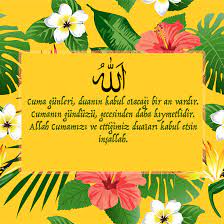 الله
Cuma günleri, duanın kabul olacağı bir an vardır.
Cumanın gündüzü, gecesinden daha kıymetlidir.
Allah Cumamızı ve ettiğimiz duaları kabul etsin
inşallah.